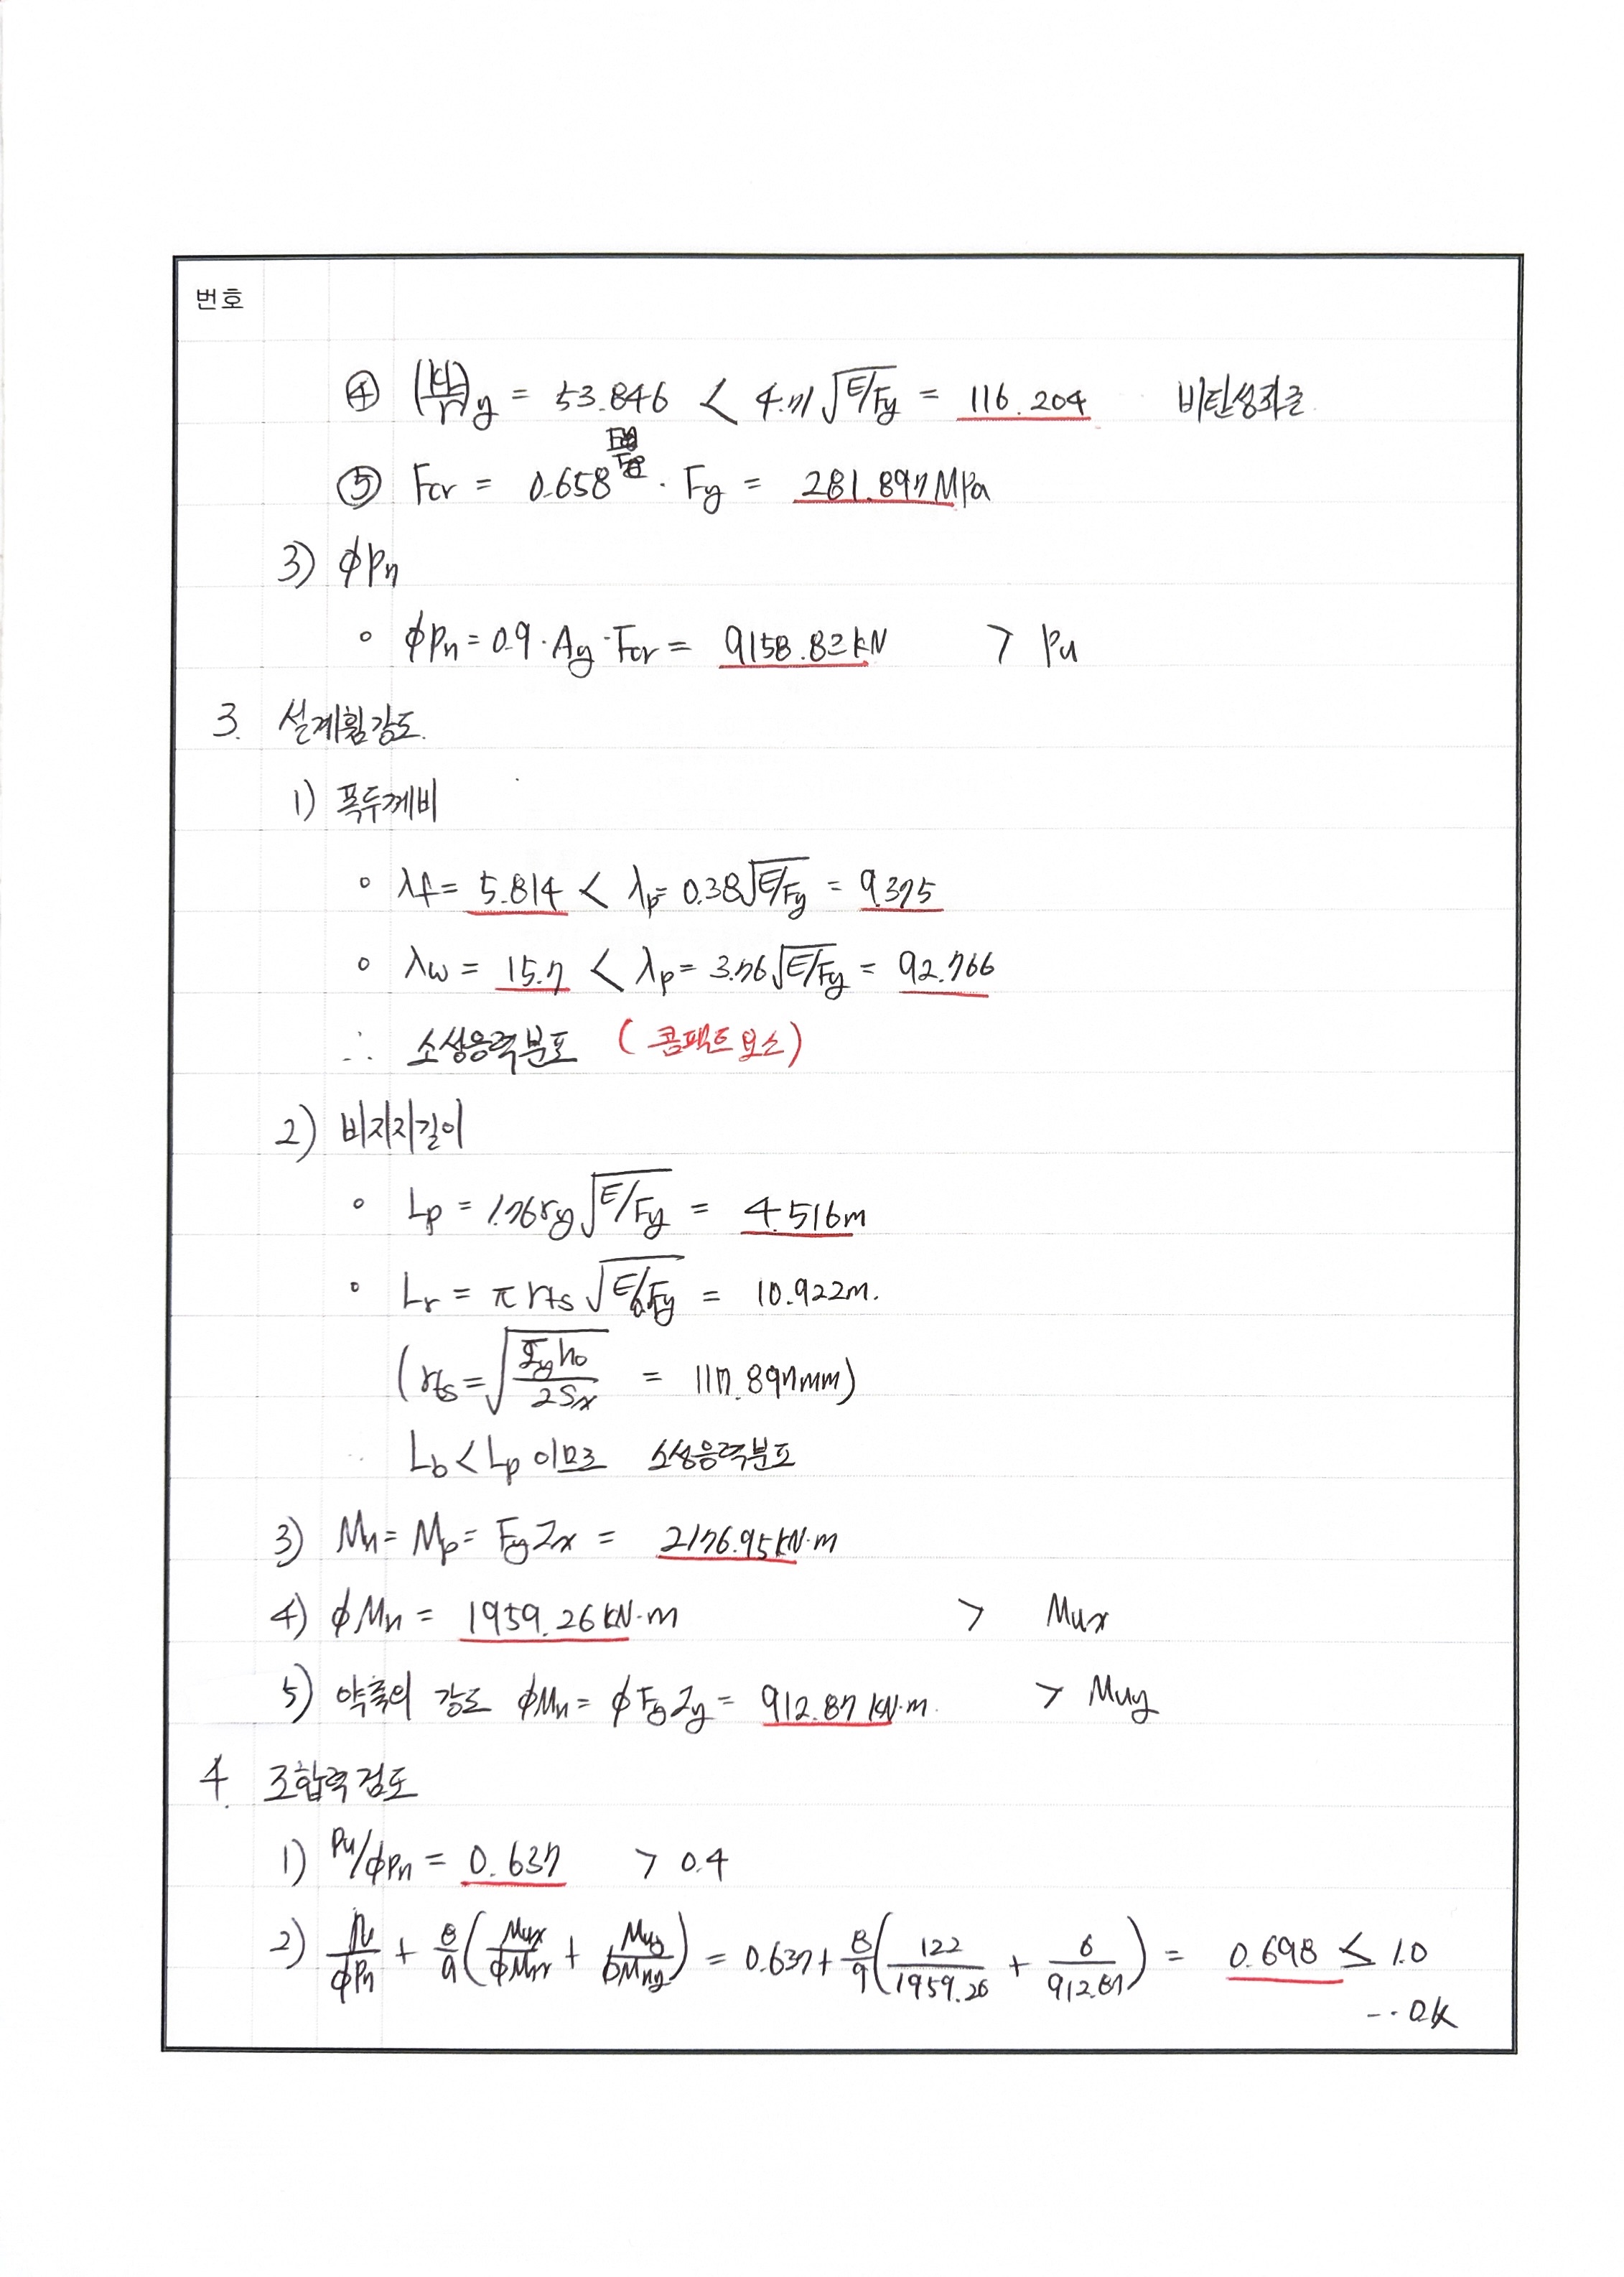 번호
④ (kL/r)y = 53.846 < 4.71√E/Fy = 116.204 비탄성좌굴
⑤ Fcr = 0.658 · Fy = 281.897MPa
3) ϕPn
∘ ϕPn = 0.9 · Ag · Fcr = 9158.83kN > Pu
3. 설계휨강도.
1) 폭두께비
∘ λf = 5.814 < λp = 0.38√E/Fy = 9.375
∘ λw = 15.7 < λp = 3.76√E/Fy = 92.766
∴ 소성응력분포 (콤팩트요소)
2) 비지지길이
∘ Lp = 1.76ry√E/Fy = 4.516m
∘ Lr = π rts √E/0.7Fy = 10.922m.
(rts = √Iyho/2Sx = 117.897mm)
Lb < Lp 이므로 소성응력분포
3) Mn = Mp = FyZx = 2176.95kN·m
4) ϕMn = 1959.26kN·m > Mux
5) 약축의 강도 ϕMn = ϕFyZy = 912.87kN·m. > Muy
4. 조합력검토
1) Pu/ϕPn = 0.637 > 0.4
2) Pu/ϕPn + 8/9(Mux/ϕMnx + Muy/ϕMny) = 0.637 + 8/9(122/1959.26 + 6/912.87) = 0.698 ≤ 1.0
--- OK